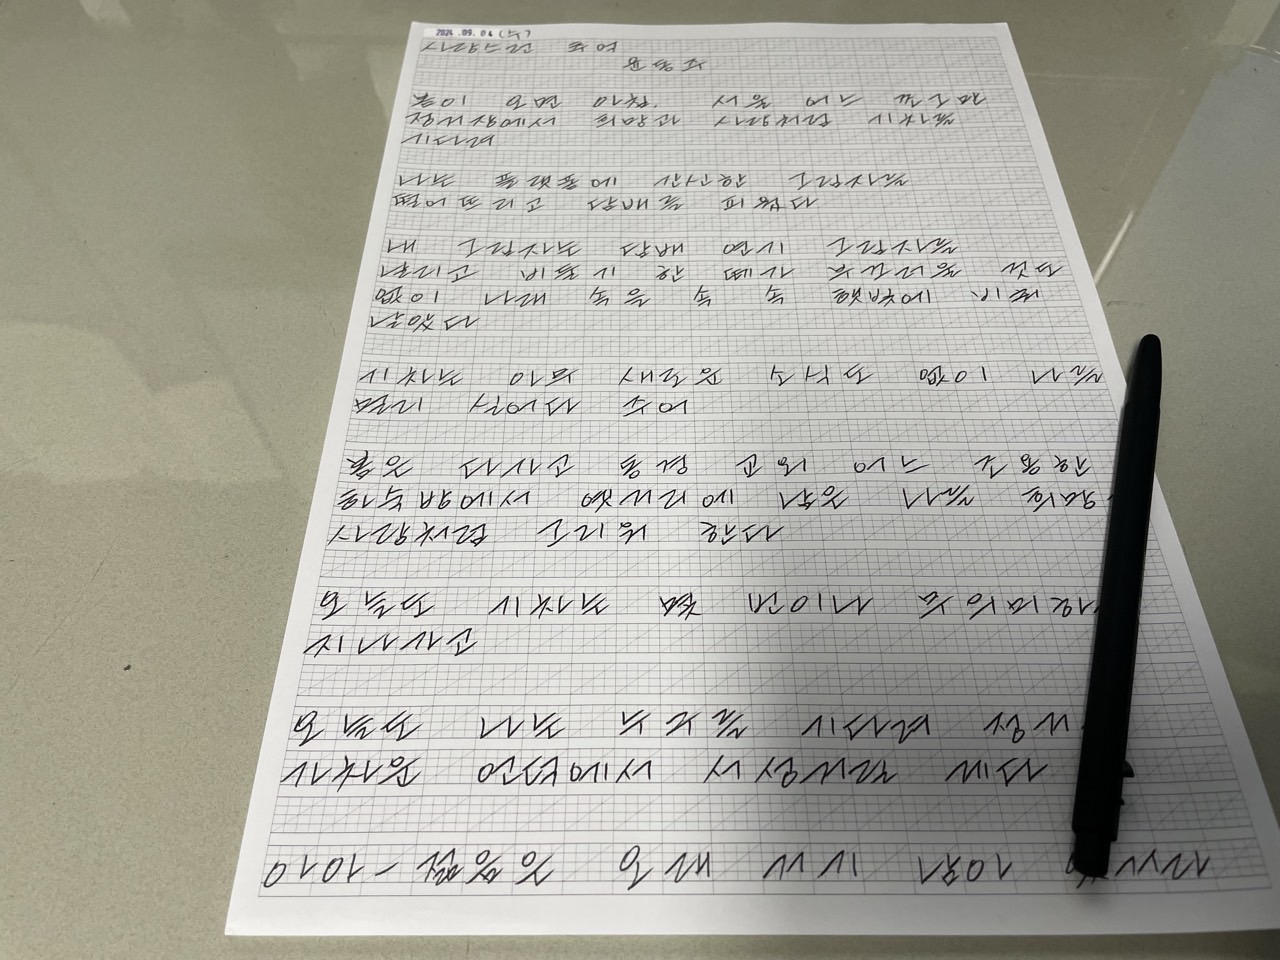 2024.09.04 (수)
사랑스런 추억
윤동주
봄이 오던 아침, 서울 어느 쪼그만
정거장에서 희망과 사랑처럼 기차를
기다려
나는 플랫폼에 간신한 그림자를
떨어뜨리고 담배를 피웠다
내 그림자는 담배 연기 그림자를
날리고 비둘기 한 떼가 부끄러울 것도
없이 나래 속을 속 속 햇빛에 비춰
날았다
기차는 아무 새로운 소식도 없이 나를
멀리 실어다 주어
봄은 다가고 동경 교외 어느 조용한
하숙방에서 옛거리에 남은 나를 희망과
사랑처럼 그리워한다
오늘도 기차는 몇 번이나 무의미하게
지나가고
오늘도 나는 누구를 기다려 정거장
가까운 언덕에서 서성거릴 게다
아아 - 젊음은 오래 거기 남아 있거라